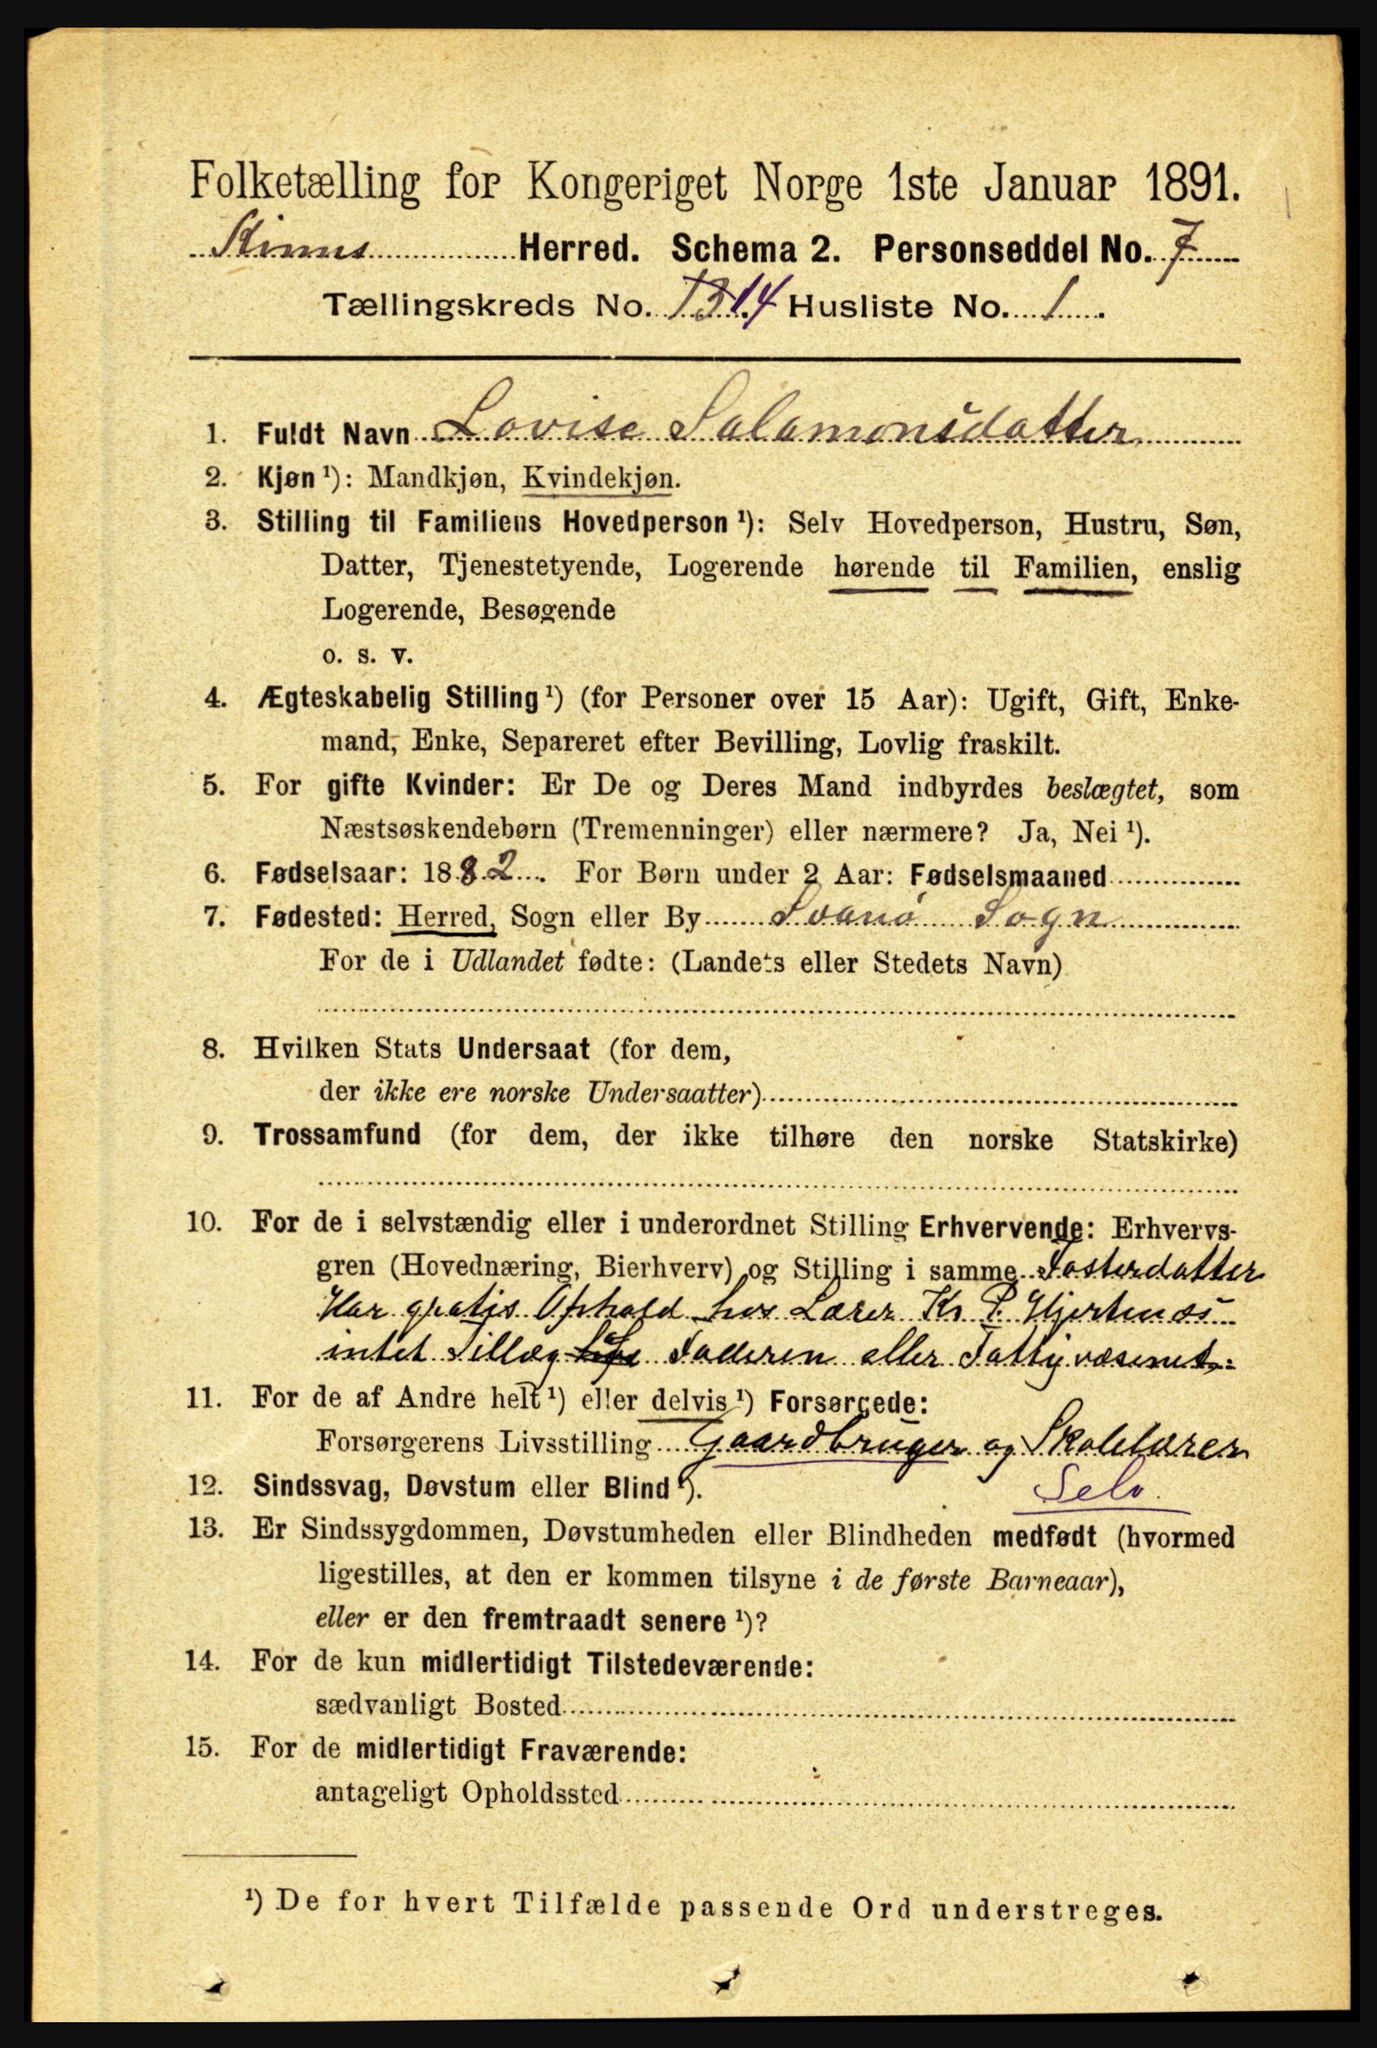 Folketælling for Kongeriget Norge 1ste Januar 1891.
Kinns Herred. Schema 2. Personseddel No. 7
Tællingskreds No. 1314 Husliste No. 1.
1. Fuldt Navn Lovise Salamonsdatter
2. Kjøn ¹): Mandkjøn, Kvindekjøn.
3. Stilling til Familiens Hovedperson ¹): Selv Hovedperson, Hustru, Søn,
Datter, Tjenestetyende, Logerende hørende til Familien, enslig
Logerende, Besøgende
o. s. v.
4. Ægteskabelig Stilling ¹) (for Personer over 15 Aar): Ugift, Gift, Enke-
mand, Enke, Separeret efter Bevilling, Lovlig fraskilt.
5. For gifte Kvinder: Er De og Deres Mand indbyrdes beslægtet, som
Næstsøskendebørn (Tremenninger) eller nærmere? Ja, Nei ¹).
6. Fødselsaar: 1882. For Børn under 2 Aar: Fødselsmaaned
7. Fødested: Herred, Sogn eller By Svanø Sogn
For de i Udlandet fødte: (Landets eller Stedets Navn)
8. Hvilken Stats Undersaat (for dem,
der ikke ere norske Undersaatter)
9. Trossamfund (for dem, der ikke tilhøre den norske Statskirke)
10. For de i selvstændig eller i underordnet Stilling Erhvervende: Erhvervs-
gren (Hovednæring, Bierhverv) og Stilling i samme Fosterdatter
Har gratis Ophold hos Lærer Kr. P. Hjertenæs
intet Tillæg Faderen eller Fattigvæsenet.
11. For de af Andre helt ¹) eller delvis ¹) Forsørgede:
Forsørgerens Livsstilling Gaardbruger og Skolelærer
12. Sindssvag, Døvstum eller Blind ¹). Selv.
13. Er Sindssygdommen, Døvstumheden eller Blindheden medfødt (hvormed
ligestilles, at den er kommen tilsyne i de første Barneaar),
eller er den fremtraadt senere ¹)?
14. For de kun midlertidigt Tilstedeværende:
sædvanligt Bosted
15. For de midlertidigt Fraværende:
antageligt Opholdssted
¹) De for hvert Tilfælde passende Ord understreges.